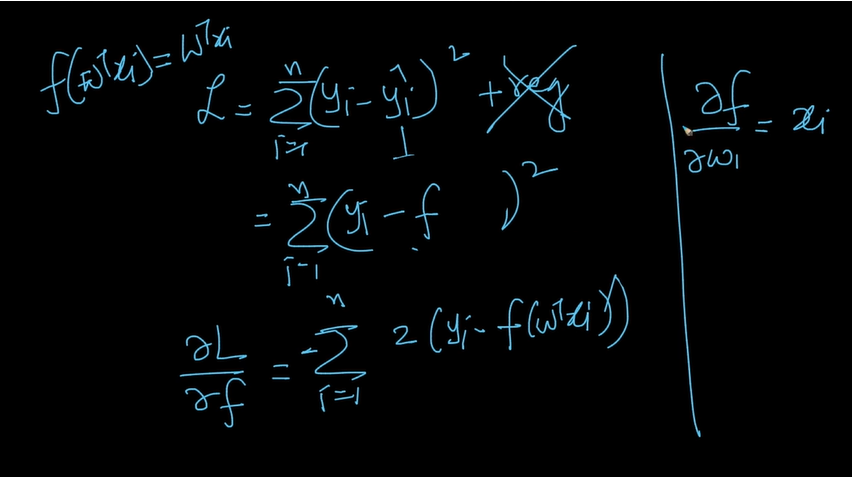 f(wᵀxi) = wᵀxi
L = Σ_{i=1}^{n} (yi − ŷi)² + reg
= Σ_{i=1}^{n} (yi − f )²
∂L/∂f = −Σ_{i=1}^{n} 2(yi − f(wᵀxi))
∂f/∂w1 = xi